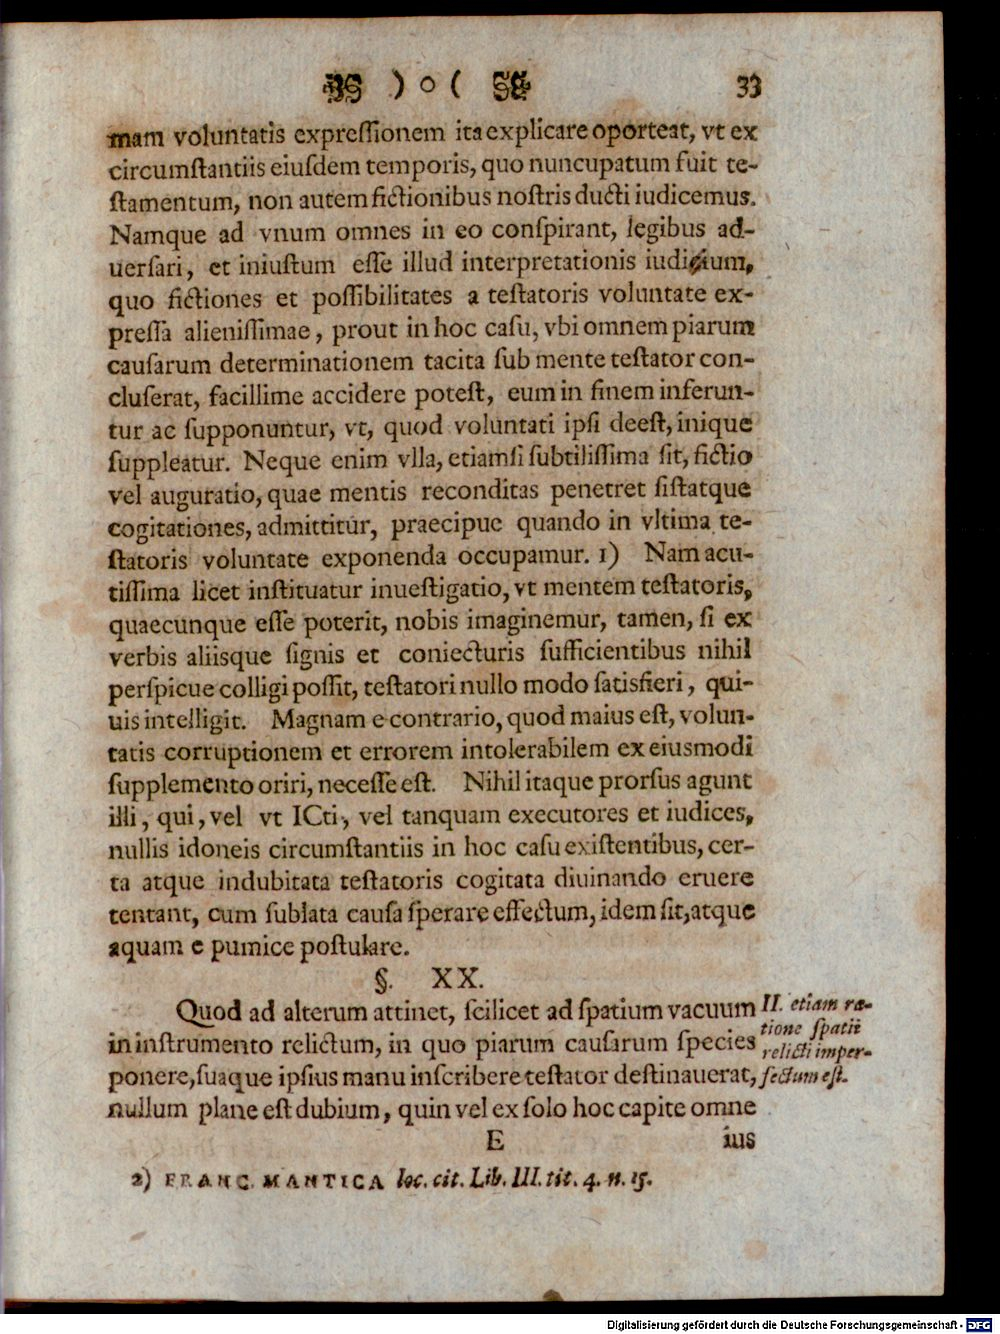 ) o ( 33
mam voluntatis expreſſionem ita explicare oporteat, vt ex
circumſtantiis eiuſdem temporis, quo nuncupatum fuit te-
ſtamentum, non autem fictionibus noſtris ducti iudicemus.
Namque ad vnum omnes in eo conſpirant, legibus ad-
uerſari, et iniuſtum eſſe illud interpretationis iudicium,
quo fictiones et poſſibilitates a teſtatoris voluntate ex-
preſſa alieniſſimae, prout in hoc caſu, vbi omnem piarum
cauſarum determinationem tacita ſub mente teſtator con-
cluſerat, facillime accidere poteſt, eum in finem inferun-
tur ac ſupponuntur, vt, quod voluntati ipſi deeſt, inique
ſuppleatur. Neque enim vlla, etiamſi ſubtiliſſima ſit, fictio
vel auguratio, quae mentis reconditas penetret ſiſtatque
cogitationes, admittitur, praecipue quando in vltima te-
ſtatoris voluntate exponenda occupamur. 1) Nam acu-
tiſſima licet inſtituatur inueſtigatio, vt mentem teſtatoris,
quaecunque eſſe poterit, nobis imaginemur, tamen, ſi ex
verbis aliisque ſignis et coniecturis ſufficientibus nihil
perſpicue colligi poſſit, teſtatori nullo modo ſatisfieri, qui-
uis intelligit. Magnam e contrario, quod maius eſt, volun-
tatis corruptionem et errorem intolerabilem ex eiusmodi
ſupplemento oriri, neceſſe eſt. Nihil itaque prorſus agunt
illi, qui, vel vt ICti, vel tanquam executores et iudices,
nullis idoneis circumſtantiis in hoc caſu exiſtentibus, cer-
ta atque indubitata teſtatoris cogitata diuinando eruere
tentant, cum ſublata cauſa ſperare effectum, idem ſit, atque
aquam e pumice poſtulare.
§. XX.
Quod ad alterum attinet, ſcilicet ad ſpatium vacuum
in inſtrumento relictum, in quo piarum cauſarum ſpecies
ponere, ſuaque ipſius manu inſcribere teſtator deſtinauerat,
nullum plane eſt dubium, quin vel ex ſolo hoc capite omne
II. etiam ra-
tione ſpatii
relicti imper-
fectum eſt.
E ius
2) FRANC. MANTICA loc. cit. Lib. III. tit. 4. n. 15.
Digitalisierung gefördert durch die Deutsche Forschungsgemeinschaft - DFG